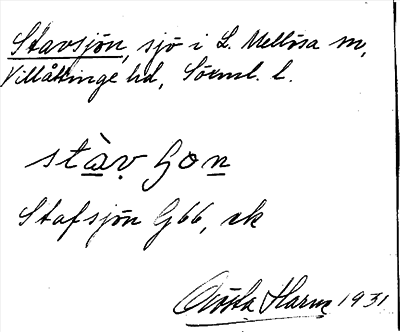 Stavsjön, sjö i L. Mellösa sn,
Villåttinge hd, Sörml. l.
stàv ʃon
Stafsjön G66, ek
Gösta Harm 1931